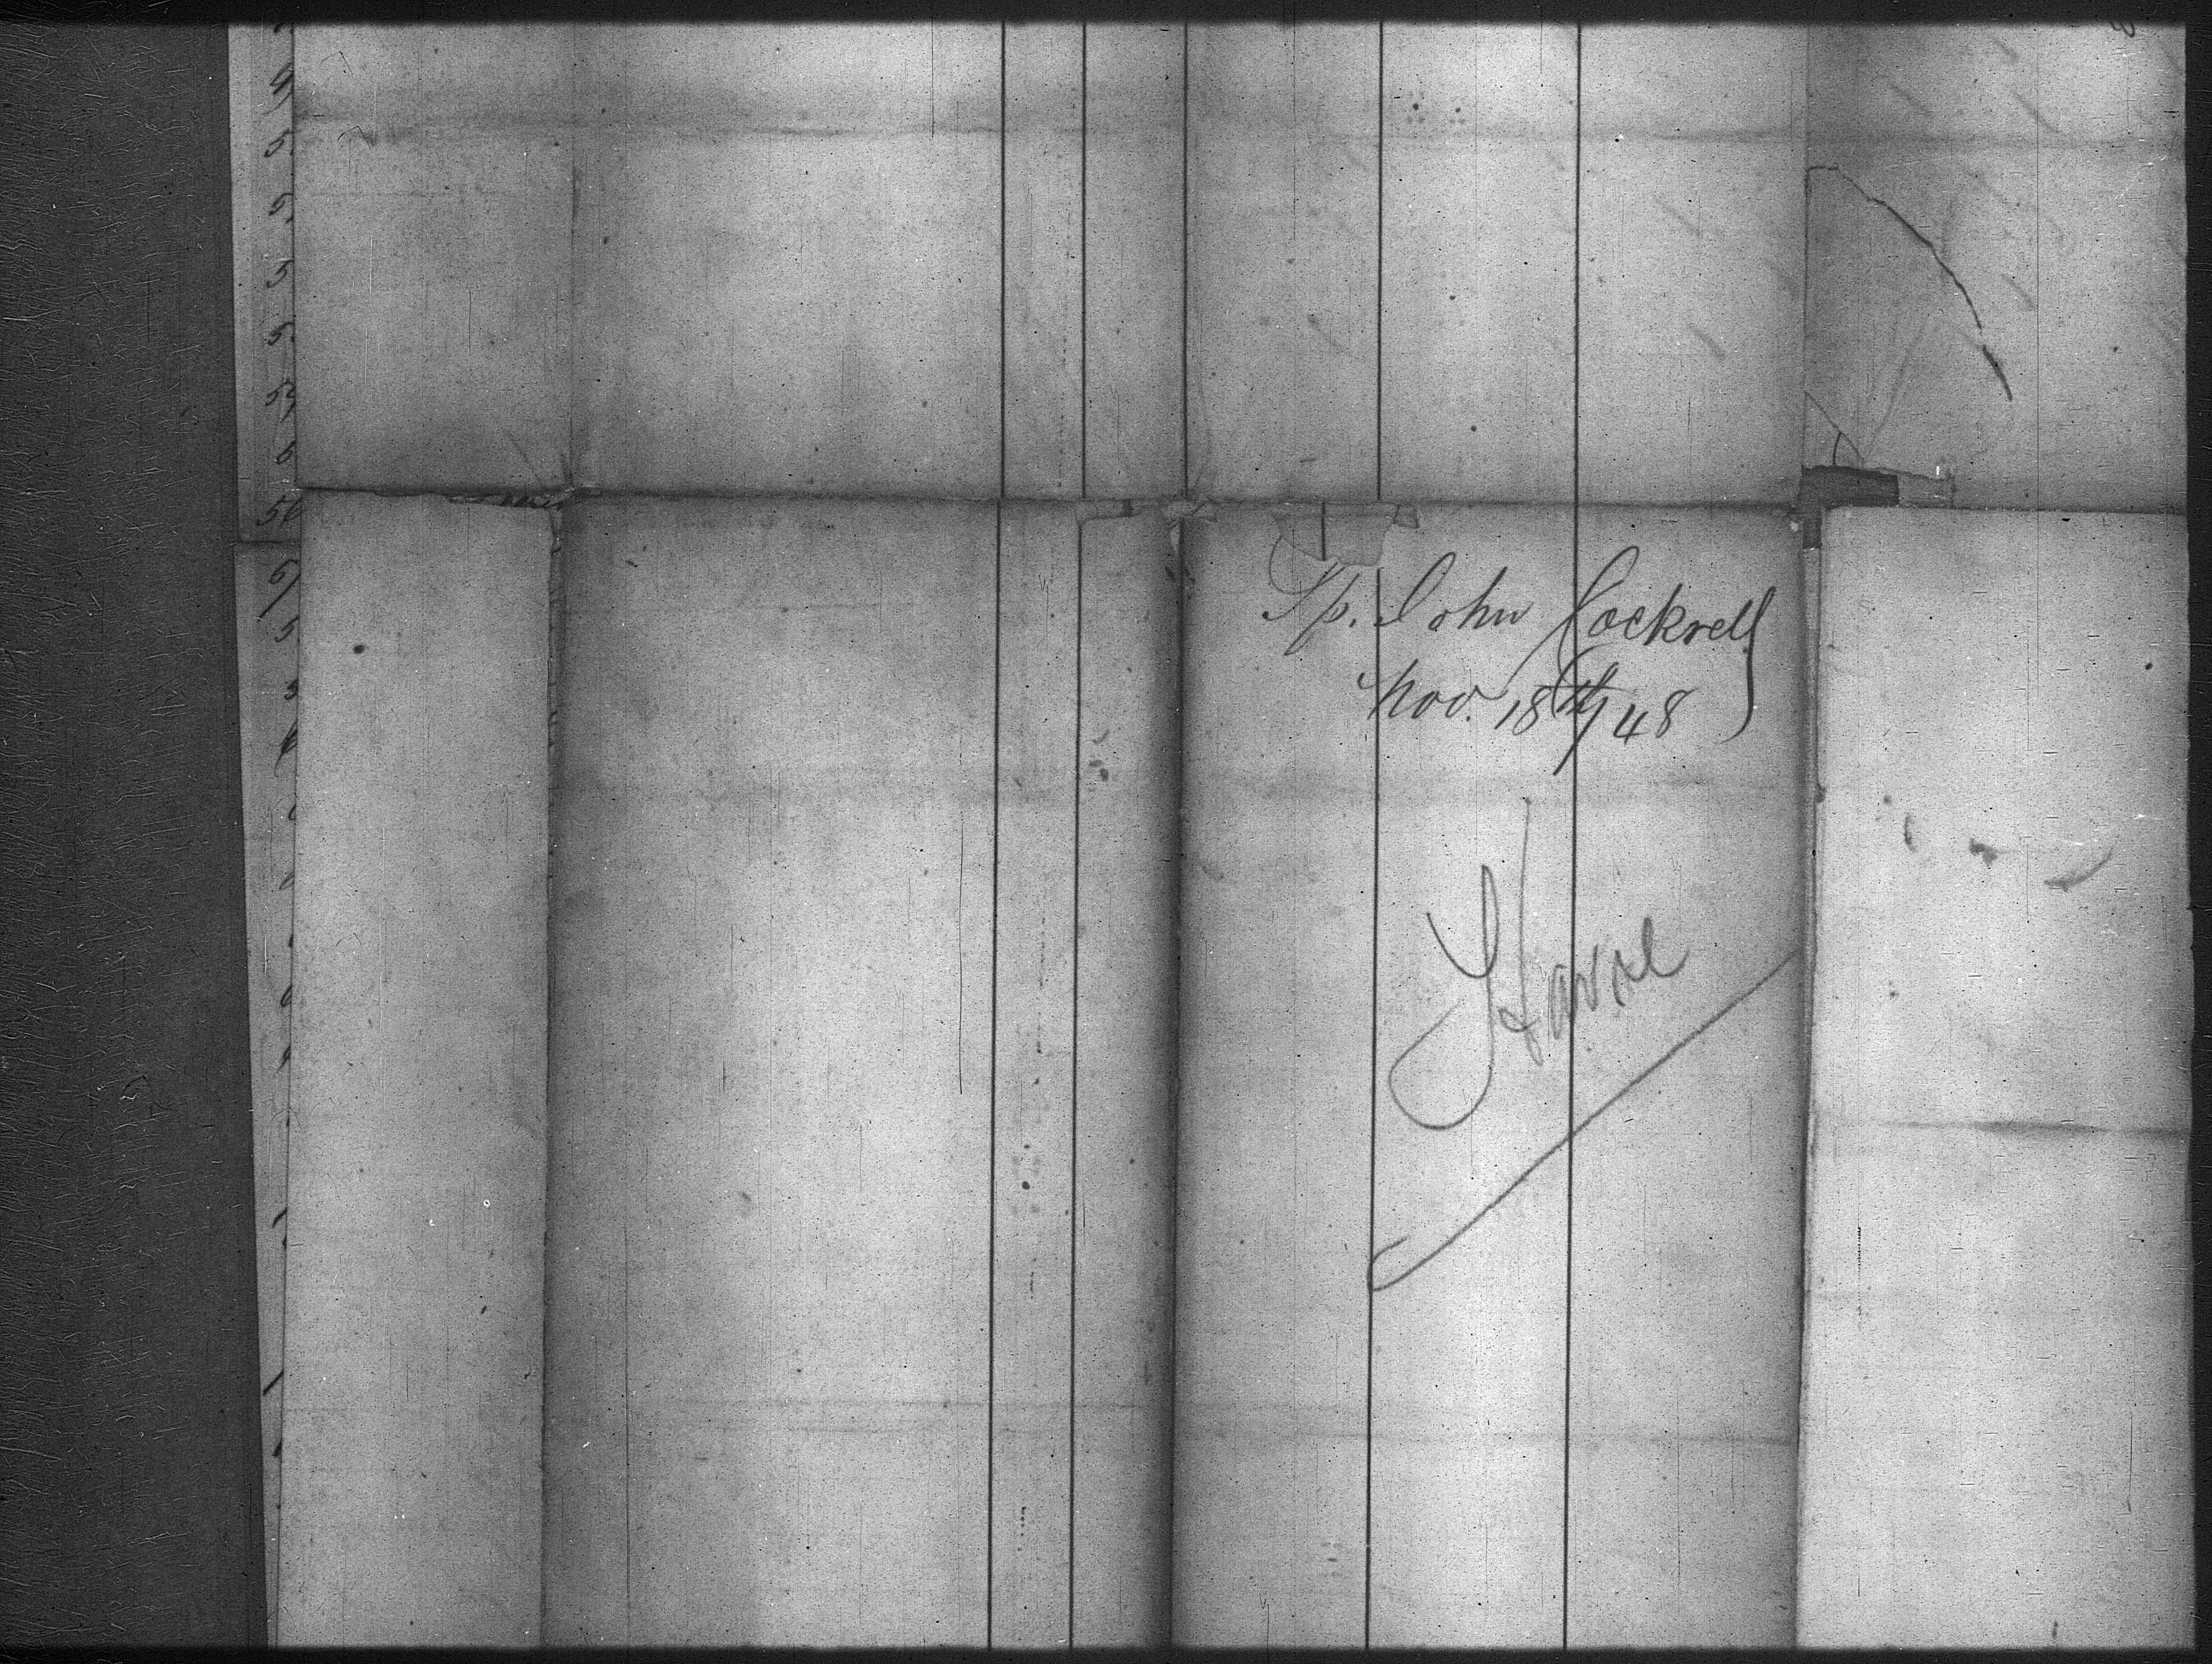 Sp. John Cockrell
Nov. 18th/48
Havre